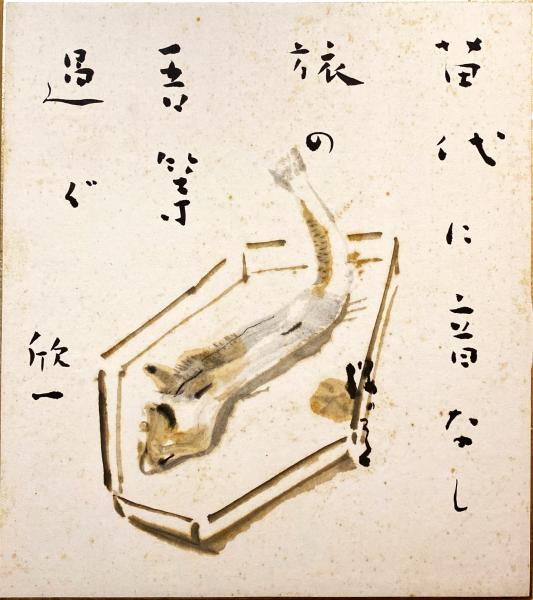 苗代に音なし
旅の
吾等
過ぐ
欣一